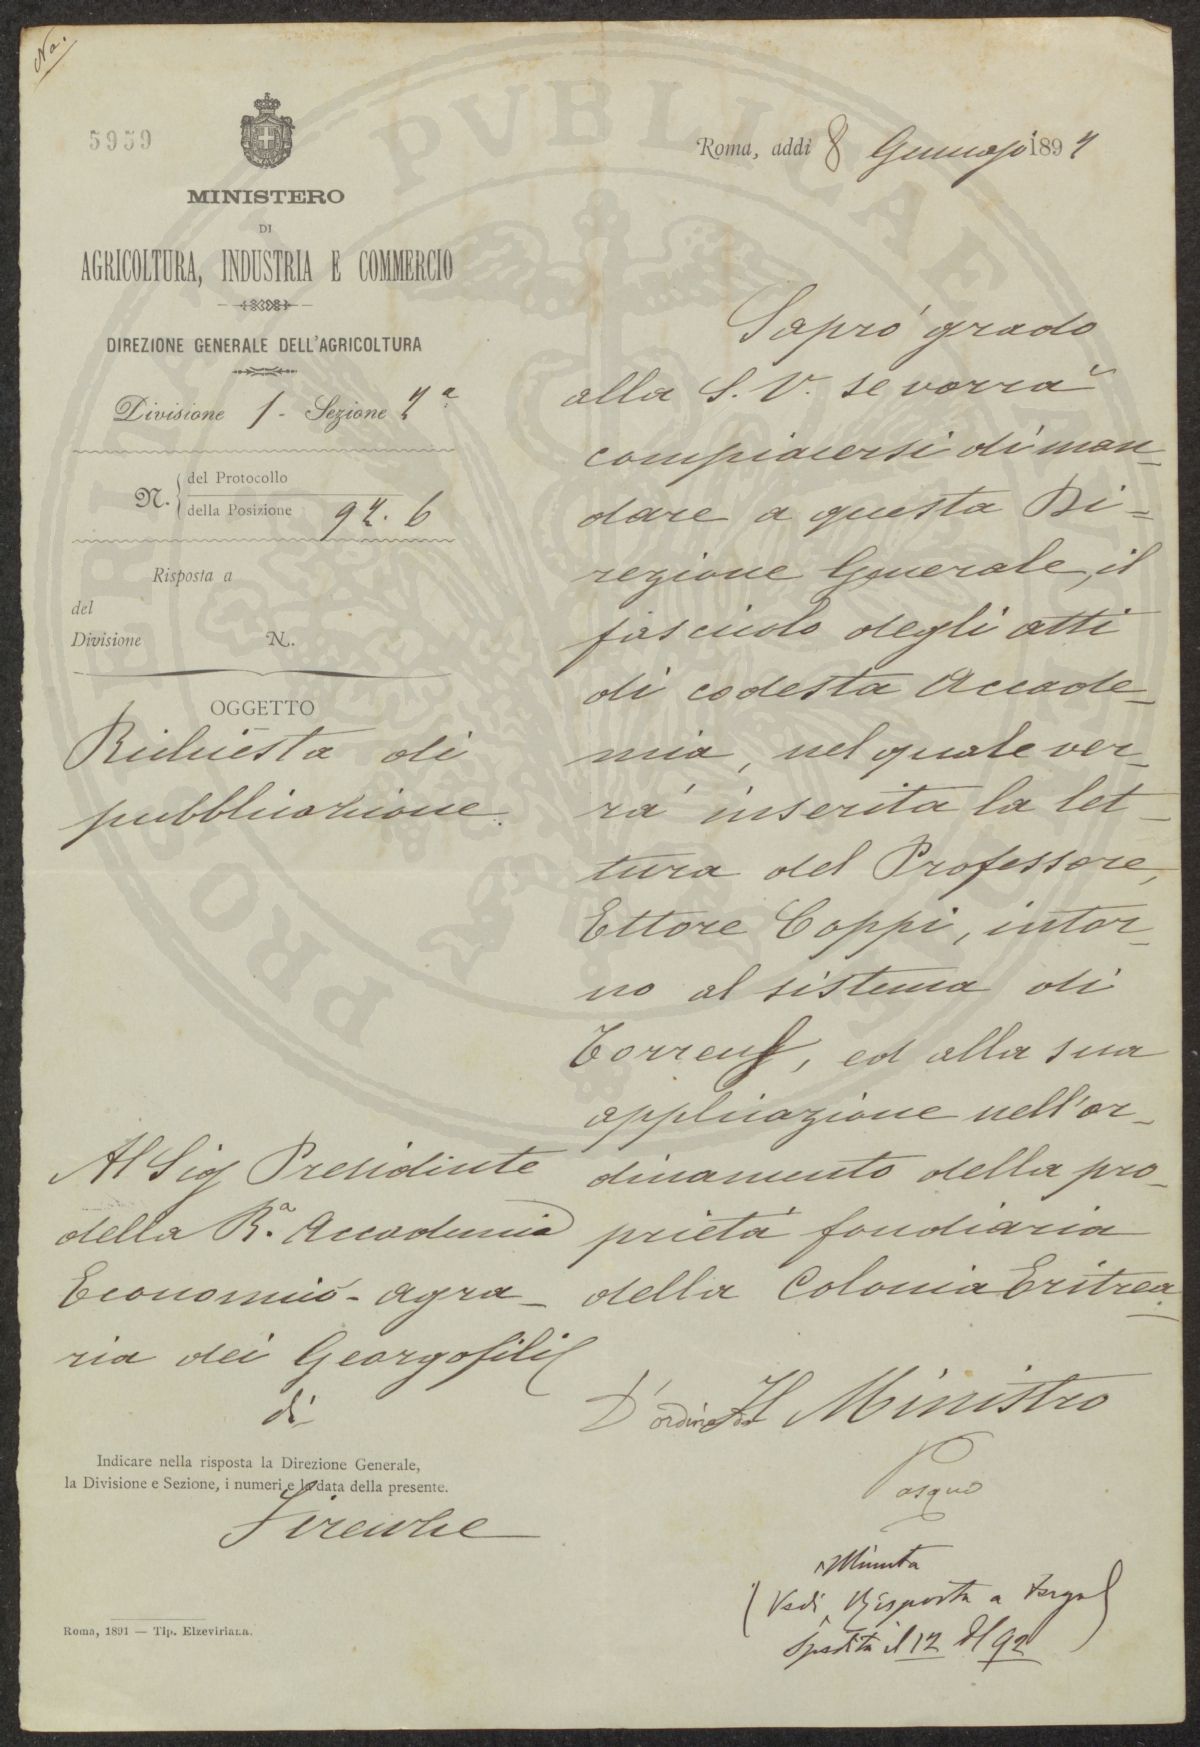 No.
5959
MINISTERO
DI
AGRICOLTURA, INDUSTRIA E COMMERCIO
DIREZIONE GENERALE DELL'AGRICOLTURA
Divisione 1 - Sezione 2ª
N. del Protocollo
della Posizione 92. 6
Risposta a
del
Divisione N.
OGGETTO
Richiesta di
pubblicazione.
Al Sig Presidente
della R.ª Accademia
Economico - agra-
ria dei Georgofili
di
Indicare nella risposta la Direzione Generale,
la Divisione e Sezione, i numeri e la data della presente.
Firenze
Roma, 1891 — Tip. Elzeviriana.
Roma, addì 8 Gennajo 1892
Saprò grado
alla S. V. se vorrà
compiacersi di man-
dare a questa Di-
rezione Generale, il
fascicolo degli atti
di codesta Accade-
mia, nel quale ver-
rà inserita la let-
tura del Professore,
Ettore Coppi, intor-
no al sistema di
Torrens, ed alla sua
applicazione nell'or-
dinamento della pro-
prietà fondiaria
della Colonia Eritrea.
D'ordine Il Ministro
Minuta
(Vedi Risposta a tergo)
Spedita il 12 92
PROSPERITATI PVBLICAE